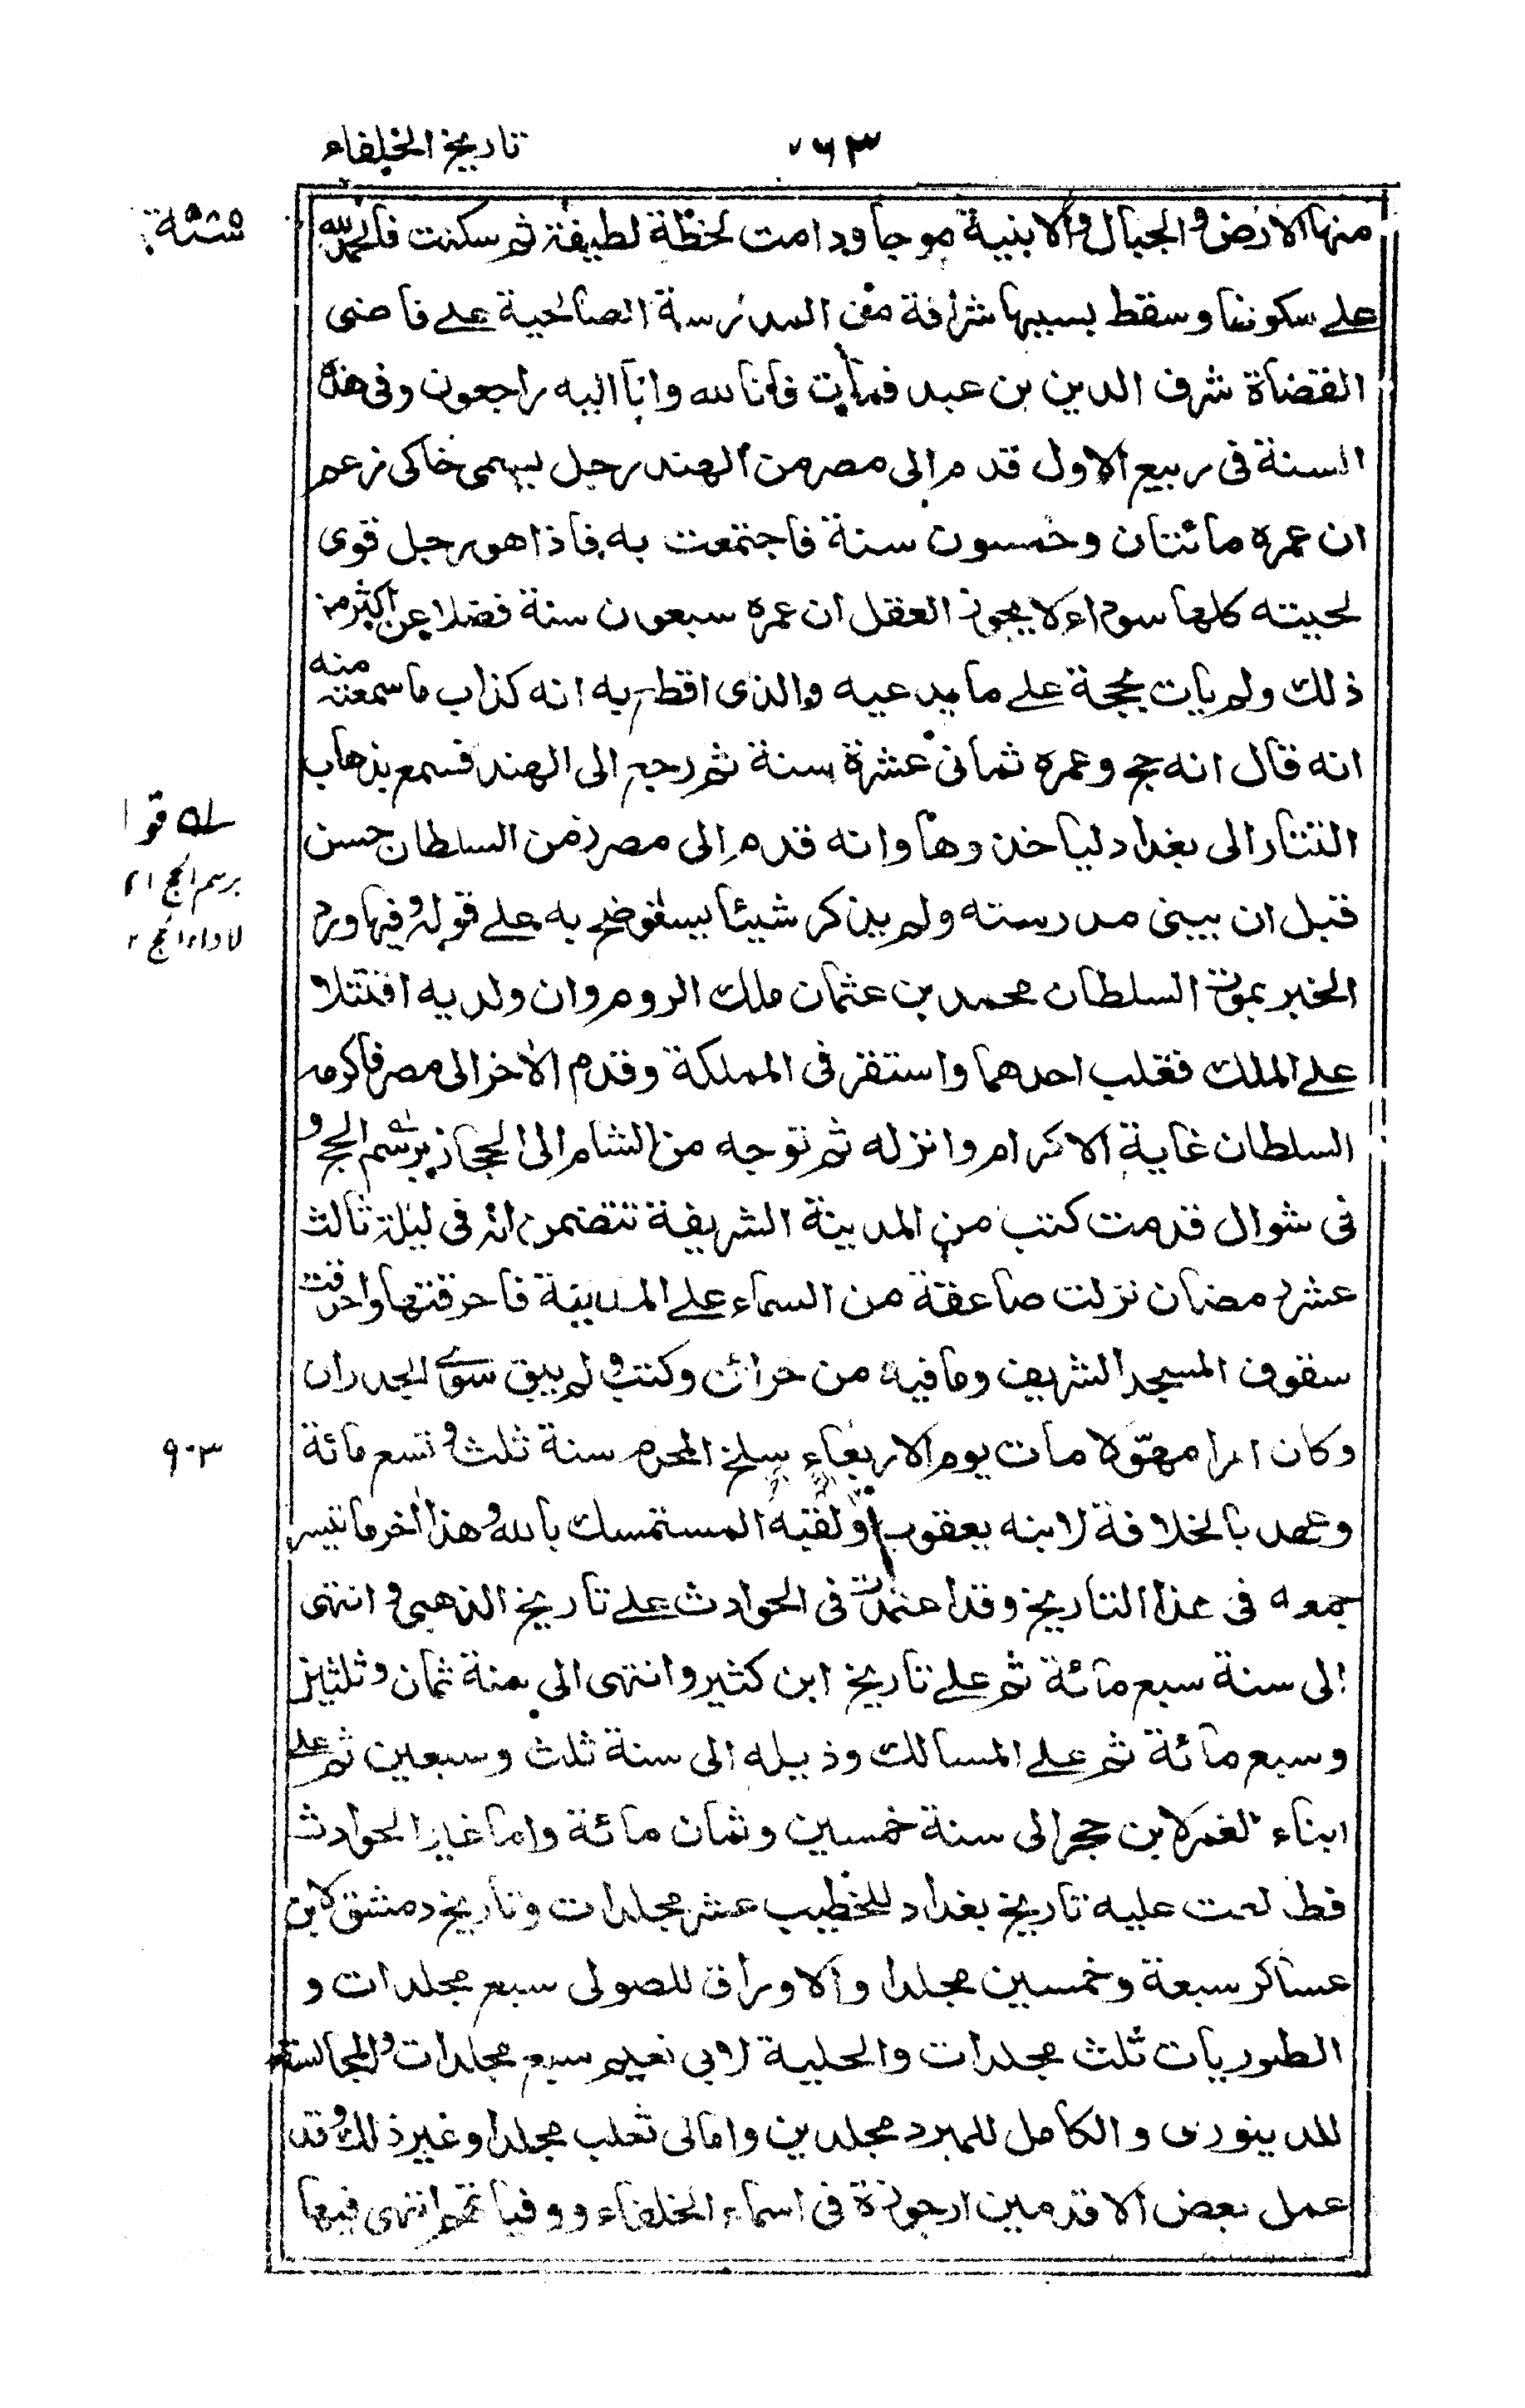 تاريخ الخلفاء
منها الارض و الجبال و الابنية موجا و دامت لحظة لطيفة ثم سكنت فالحمد لله
على سكونها و سقط بسببها شرافة من المدرسة الصالحية على قاضى
القضاة شرف الدين بن عبد فمات فانا لله وانا اليه راجعون وفى هذه
السنة فى ربيع الاول قدم الى مصر من الهند رجل يسمى خاكى زعم
ان عمره مائتان وخمسون سنة فاجتمعت به فاذا هو رجل قوى
لحيته كلها سوداء لا يجوز العقل ان عمره سبعون سنة فضلا عن اكثر من
ذلك ولم يات بحجة على ما يدعيه والذى اقطع به انه كذاب ما سمعته منه
انه قال انه حج وعمره ثمانى عشرة سنة ثم رجع الى الهند فسمع بذهاب
التتار الى بغداد لياخذوها وانه قدم الى مصر زمن السلطان حسن
قبل ان يبنى مدرسته ولم يذكر شيئا يستوضح به على قوله و فيها ورد
الخبر بموت السلطان محمد بن عثمان ملك الروم وان ولديه اقتتلا
على الملك فغلب احدهما واستقر فى المملكة وقدم الاخر الى مصر فاكرمه
السلطان غاية الاكرام وانزله ثم توجه من الشام الى الحجاز برسم الحج و
فى شوال قدمت كتب من المدينة الشريفة تتضمن انه فى ليلة ثالث
عشر رمضان نزلت صاعقة من السماء على المدينة فاحرقتها واحرقت
سقوف المسجد الشريف وما فيه من خزائن وكتب و لم يبق سوى الجدران
وكان امرا مهولا مات يوم الاربعاء سلخ المحرم سنة ثلث و تسع مائة
٩٠٣
وعهد بالخلافة لابنه يعقوب ولقبه المستمسك بالله و هذا اخر ما تيسر
جمعه فى هذا التاريخ وقد اعتمدت فى الحوادث على تاريخ الذهبى و انتهى
الى سنة سبع مائة ثم على تاريخ ابن كثير وانتهى الى سنة ثمان و ثلثين
و سبع مائة ثم على المسالك وذيله الى سنة ثلث وسبعين ثم على
انباء الغمر لابن حجر الى سنة خمسين وثمان مائة واما غير الحوادث
فطالعت عليه تاريخ بغداد للخطيب عشر مجلدات و تاريخ دمشق لابن
عساكر سبعة وخمسين مجلدا والاوراق للصولى سبع مجلدات و
الطيوريات ثلث مجلدات والحلية لابى نعيم سبع مجلدات و المجالسة
للدينورى والكامل للمبرد مجلدين وامالى ثعلب مجلدا وغير ذلك و قد
عمل بعض الاقدمين ارجوزة فى اسماء الخلفاء ووفياتهم انتهى فيها